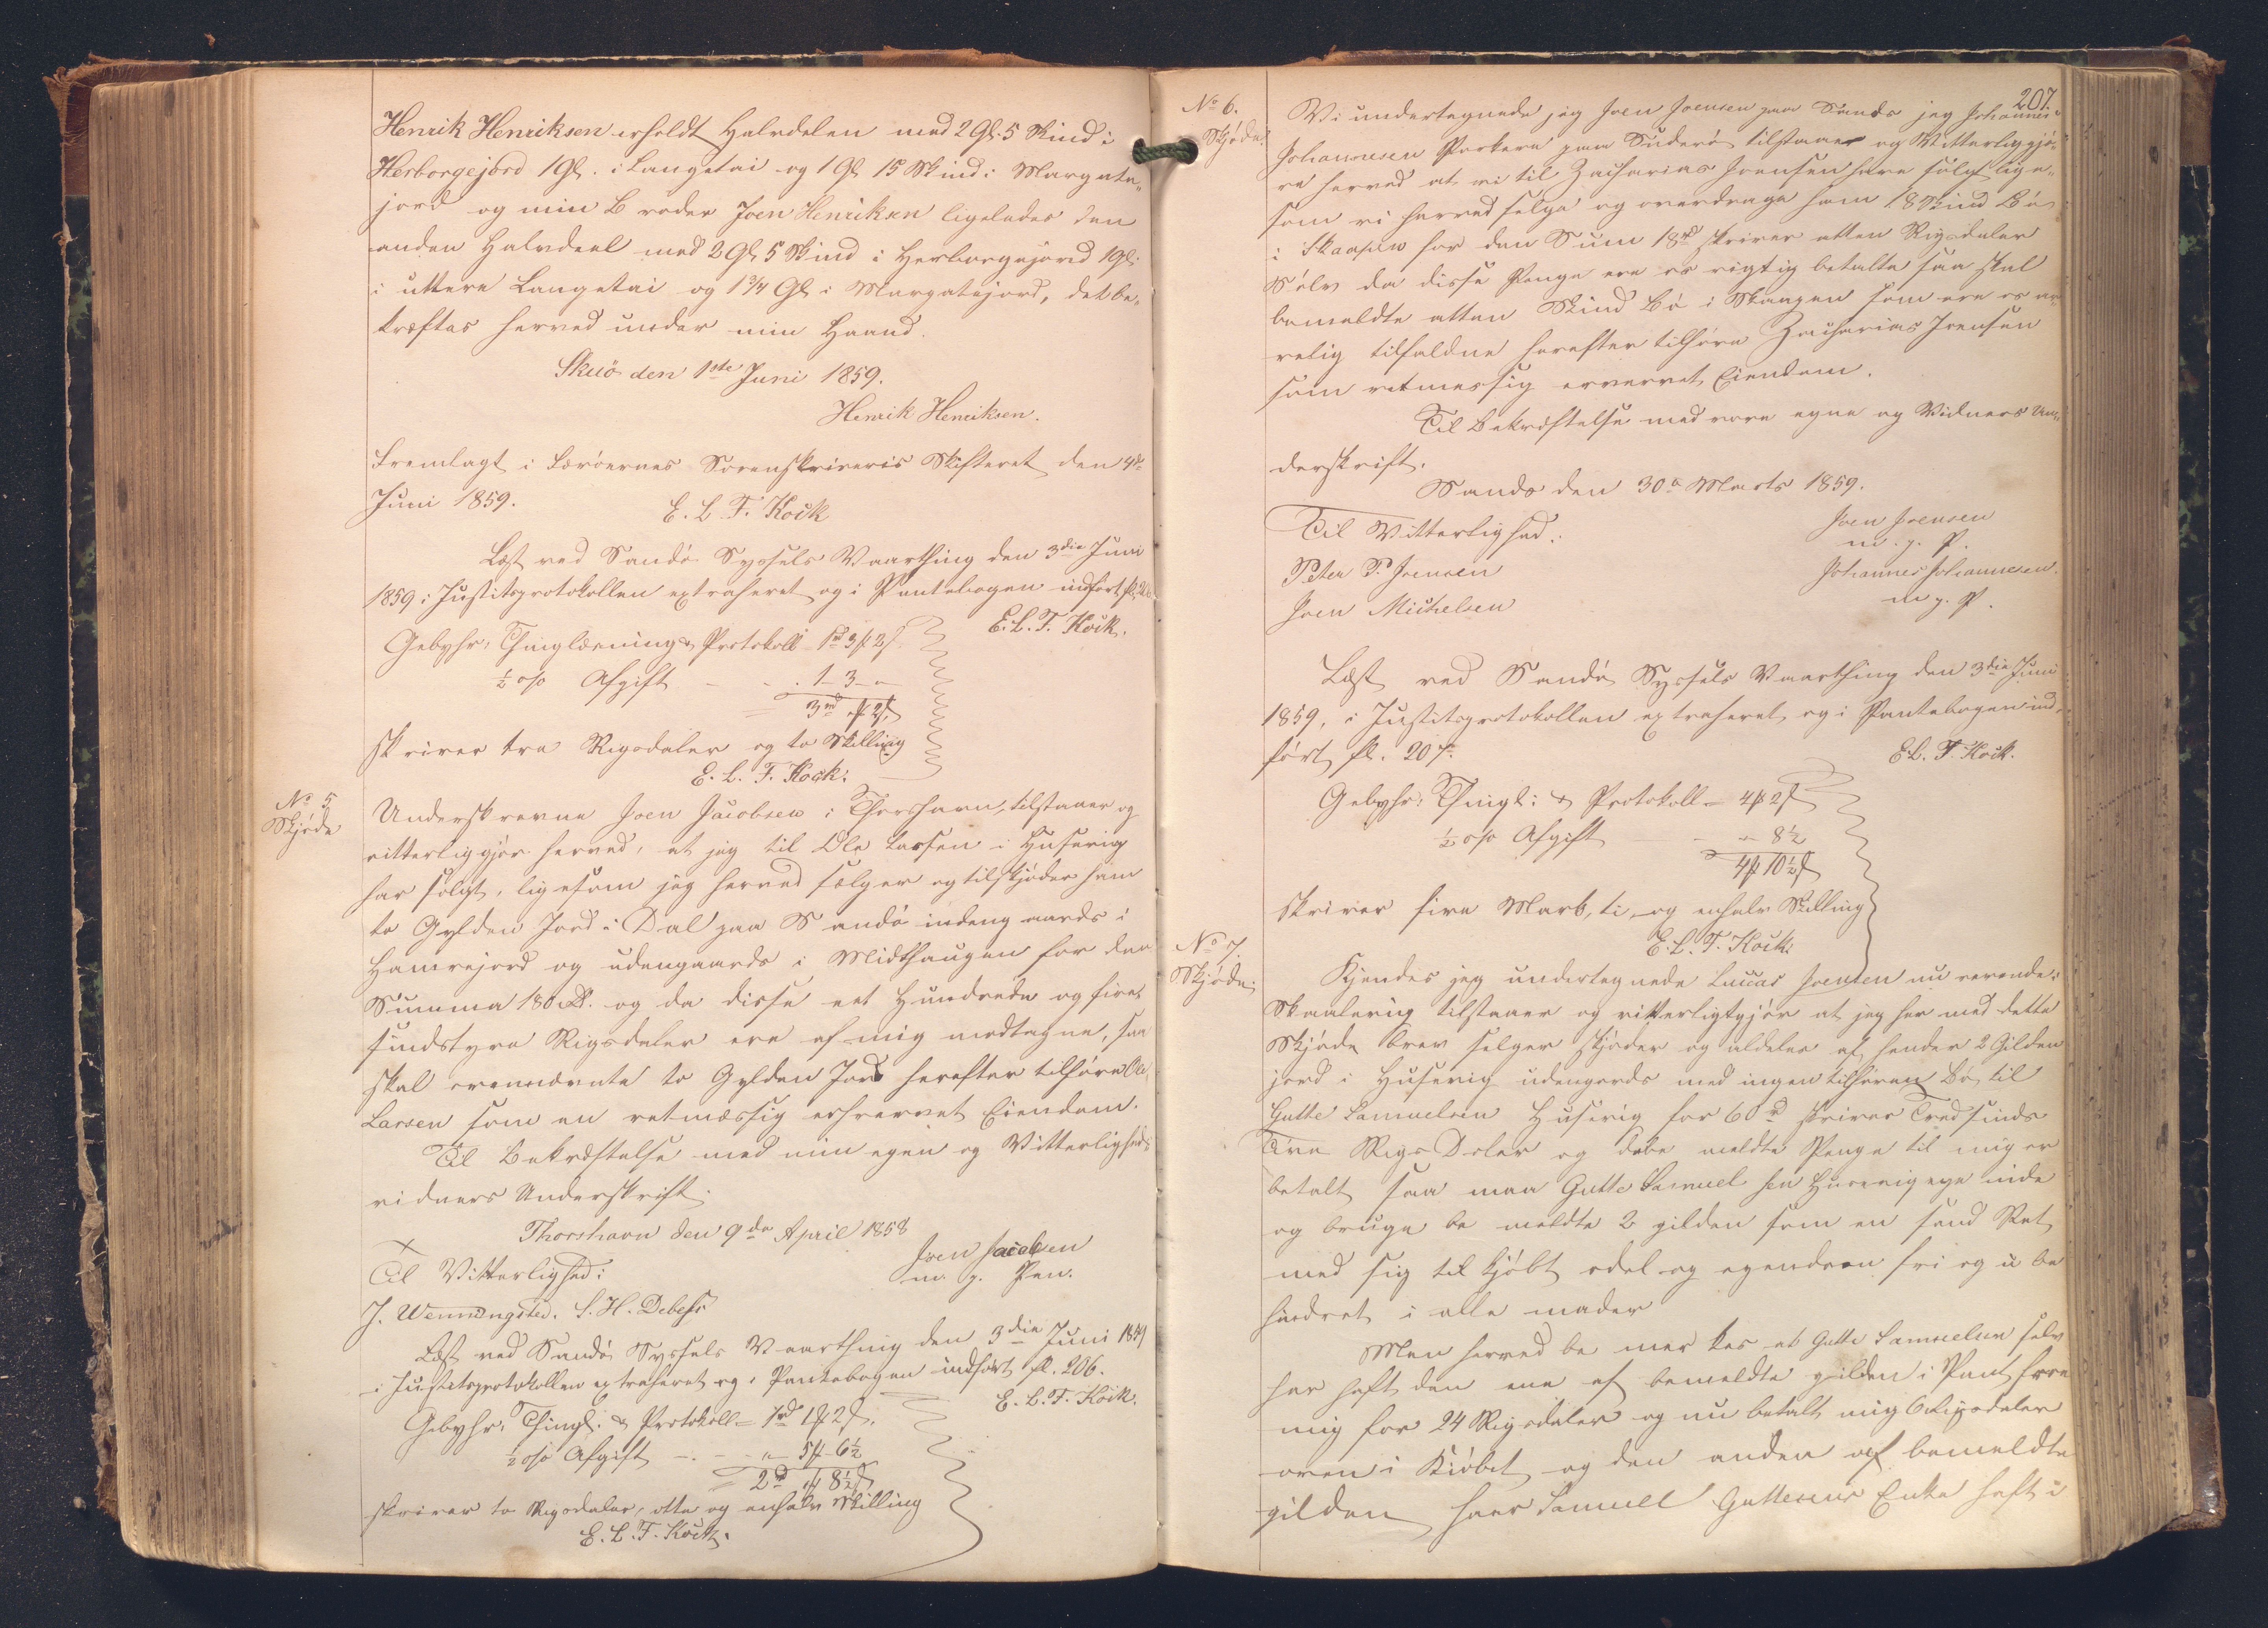 Henrik Henriksen erholdt Halvdelen med 2 Gl. 5 Skind i
Herborgejord 1 Gl. i Langetai og 1 Gl 15 Skind i Margrete„
jord og min Broder Joen Henriksen ligeledes den
anden Halvdeel med 2 Gl 5 Skind i Herborgejord 1 Gl.
i uttere Langetai og 1 3/4 Gl i Margretejord, det be„
kræftes herved under min Haand.
Skuö den 1ste Juni 1859.
Henrik Henriksen.
Fremlagt i Færöernes Sorenskriveris Skifteret den 4de
Juni 1859.
E. L. F. Kock
Læst ved Sandö Syssels Vaarthing den 3die Juni
1859 i Justitsprotokollen extraheret og i Pantebogen indfört fl.
E. L. F. Kock.
Gebyhr: Thinglæsning & Protokoll 1rd 3 ß 2 s
½ o/o Afgift - - 1 - 3 - „
3rd „ ß 2 s
skriver tre Rigsdaler og to Skilling
E. L. F. Kock.
No 5
Skjöde
Underskrevne Joen Jacobsen i Thorshavn, tilstaaer og
vitterliggjör herved, at jeg til Ole Larsen i Husevig
har solgt, ligesom jeg herved sælger og tilskjöder ham
to Gylden Jord i Dal paa Sandö indengaards i
Hamrejord og udengaards i Midthaugen for den
Summa 180 rd. og da disse eet Hundrede og fire
sindstyve Rigsdaler ere af mig modtagne, saa
skal ovennævnte to Gylden Jord herefter tilhöre Ole
Larsen som en retmæssig erhvervet Eiendom.
Til Bekræftelse med min egen og Vitterligheds
vidners Underskrift.
Thorshavn den 9de April 1858
Til Vitterlighed:
Joen Jacobsen
m. f. Pen.
J. Wenningsted. S. H. Debess
Læst ved Sandö Syssels Vaarthing den 3die Juni 1859
i Justitsprotokollen extraheret og i Pantebogen indfört fl. 206.
E. L. F. Kock.
Gebyhr: Thingl. & Protokoll - 1rd 1 ß 2 s.
½ o/o Afgift - - - „ - 5 ß - 6½
2rd „ ß 8½ s
skriver to Rigsdaler, otte og enhalv Skilling
E. L. F. Kock.
207.
No 6.
Skjöde.
Vi undertegnede jeg Joen Joensen paa Sands jeg Johannes
Johannesen Porkere paa Suderö tilstaaer og Vitterliggjö„
re herved at vi til Zacharias Joensen have solgt lige„
som vi herved selge og overdrage ham 18 Skind Bö
i Skaapen for den Sum 18rd skriver atten Rigsdaler
Sölv da disse Penge ere os rigtig betalte saa skal
bemeldte atten Skind Bö i Skaapen som ere os ar„
velig tilfaldne herefter tilhöre Zacharias Joensen
som retmessig ervervet Eiendom.
Til Bekræftelse med vore egne og Vidners Un„
derskrift.
Sands den 30te Marts 1859.
Til Vitterlighed:
Joen Joensen
m. f. P.
Peter P. Joensen
Johannes Johannesen.
Joen Michelsen
m. f. P.
Læst ved Sandö Syssels Vaarthing den 3die Juni
1859, i Justitsprotokollen extraheret og i Pantebogen ind„
fört fl. 207.
E. L. F. Kock.
Gebyhr: Thingl: & Protokoll - 4 ß 2 s
½ o/o Afgift - „ 8½
4 ß 10½ s
skriver fire Mark, ti og enhalv Skilling
E. L. F. Kock.
No 7.
Skjöde.
Kjendes jeg undertegnede Luccas Joensen nu verende i
Skaalevig tilstaaer og vitterligtgjör at jeg her med dette
Skjöde brev selger skjöder og aldeles af hender 2 Gilden
jord i Husevig udengards med ingen tilhören Bö, til
Gutte Samuelsen Husevig for 60rd skriver Tred sinds
Tive Rigs Daler og dabe meldte Penge til mig er
betalt saa maa Gutte Samuel sen Husevig eye inde
og bruge be meldte 2 gilden som en sand Ret
med sig til kjöbt odel og egendom fri og u be
hindret i alle mader
Men herved be mer kes at Gutte Samuelsen selv
har haft den ene af bemeldte gilden i Pant for
mig for 24 Rigsdaler og nu betalt mig 6 Rigsdaler
oven i Kiöbet og den anden af bemeldte
gilden haver Samuell Guttesens Enke haft i